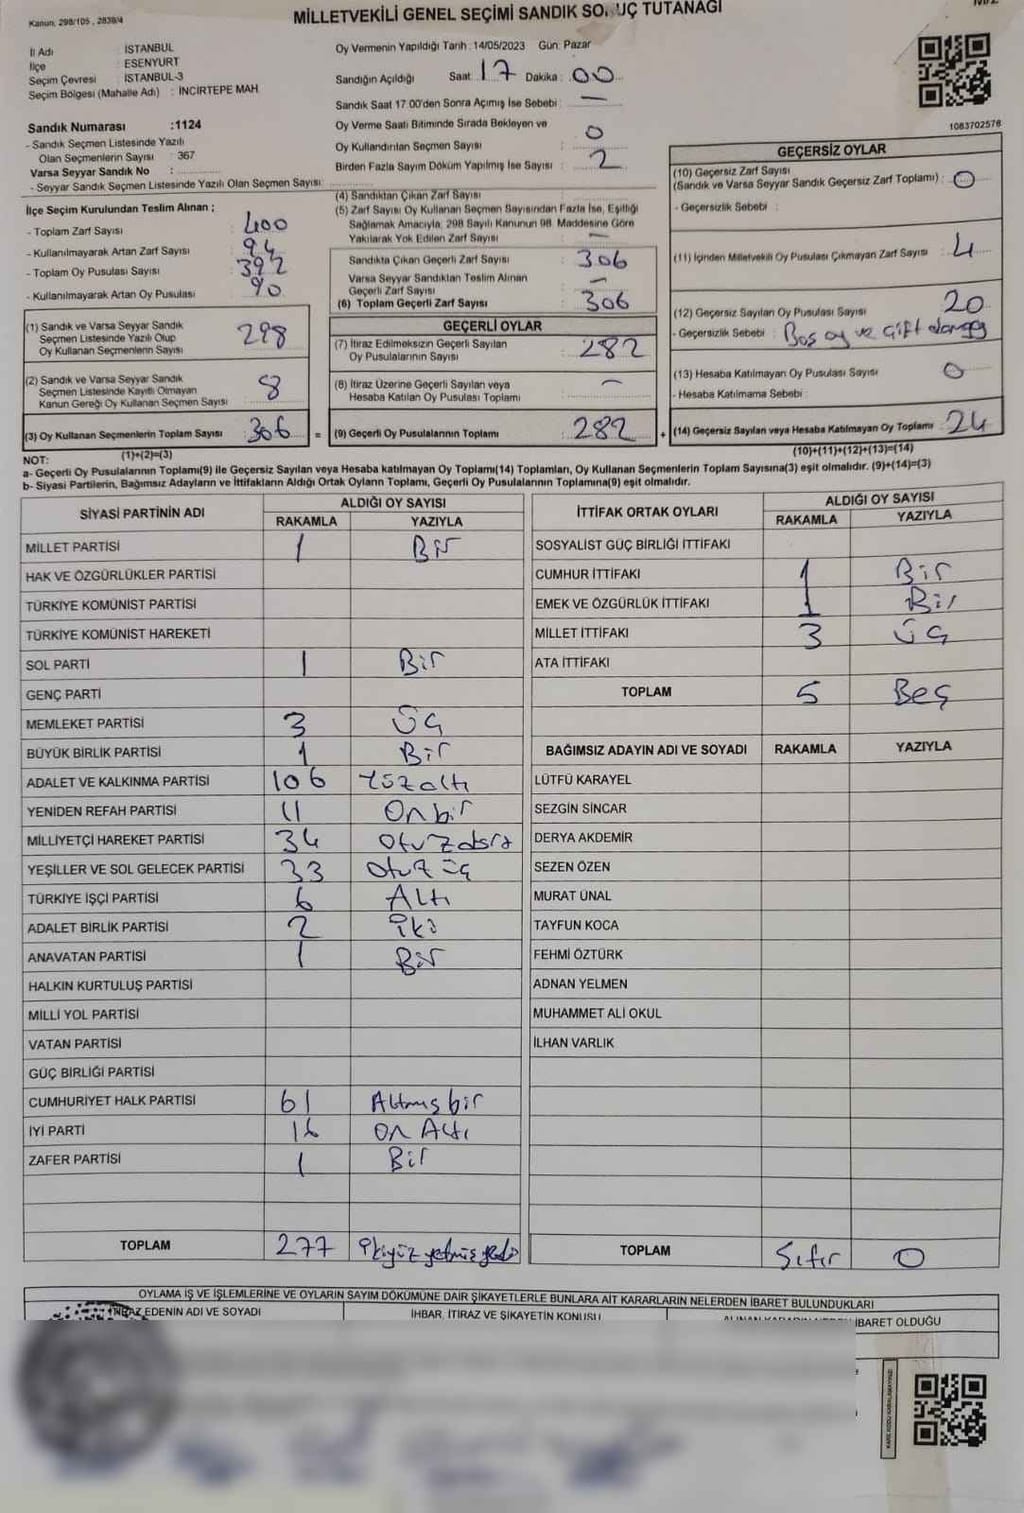 Kanun, 298/105 , 2839/4
MİLLETVEKİLİ GENEL SEÇİMİ SANDIK SONUÇ TUTANAĞI
İl Adı : İSTANBUL
İlçe : ESENYURT
Seçim Çevresi : İSTANBUL-3
Seçim Bölgesi (Mahalle Adı) : İNCİRTEPE MAH
Oy Vermenin Yapıldığı Tarih : 14/05/2023 Gün: Pazar
Sandığın Açıldığı Saat 17 Dakika : 00
Sandık Saat 17:00'den Sonra Açımış İse Sebebi : —
Oy Verme Saati Bitiminde Sırada Bekleyen ve
Oy Kullandırılan Seçmen Sayısı : 0
Birden Fazla Sayım Döküm Yapılmış İse Sayısı : 2
1083702576
Sandık Numarası :1124
- Sandık Seçmen Listesinde Yazılı
Olan Seçmenlerin Sayısı : 367
Varsa Seyyar Sandık No :
- Seyyar Sandık Seçmen Listesinde Yazılı Olan Seçmen Sayısı:
İlçe Seçim Kurulundan Teslim Alınan ;
- Toplam Zarf Sayısı : 400
- Kullanılmayarak Artan Zarf Sayısı : 94
- Toplam Oy Pusulası Sayısı : 392
- Kullanılmayarak Artan Oy Pusulası : 90
(1) Sandık ve Varsa Seyyar Sandık
Seçmen Listesinde Yazılı Olup
Oy Kullanan Seçmenlerin Sayısı 298
(2) Sandık ve Varsa Seyyar Sandık
Seçmen Listesinde Kayıtlı Olmayan
Kanun Gereği Oy Kullanan Seçmen Sayısı : 8
(3) Oy Kullanan Seçmenlerin Toplam Sayısı : 306
(1)+(2)=(3)
(4) Sandıktan Çıkan Zarf Sayısı
(5) Zarf Sayısı Oy Kullanan Seçmen Sayısından Fazla İse, Eşitliği
Sağlamak Amacıyla, 298 Sayılı Kanunun 98. Maddesine Göre
Yakılarak Yok Edilen Zarf Sayısı : —
Sandıkta Çıkan Geçerli Zarf Sayısı : 306
Varsa Seyyar Sandıktan Teslim Alınan
Geçerli Zarf Sayısı : —
(6) Toplam Geçerli Zarf Sayısı : 306
GEÇERLİ OYLAR
(7) İtiraz Edilmeksizin Geçerli Sayılan
Oy Pusulalarının Sayısı : 282
(8) İtiraz Üzerine Geçerli Sayılan veya
Hesaba Katılan Oy Pusulası Toplamı : —
= (9) Geçerli Oy Pusulalarının Toplamı : 282
GEÇERSİZ OYLAR
(10) Geçersiz Zarf Sayısı
(Sandık ve Varsa Seyyar Sandık Geçersiz Zarf Toplamı) : 0
- Geçersizlik Sebebi :
(11) İçinden Milletvekili Oy Pusulası Çıkmayan Zarf Sayısı : 4
(12) Geçersiz Sayılan Oy Pusulası Sayısı : 20
- Geçersizlik Sebebi : Boş oy ve çift
(13) Hesaba Katılmayan Oy Pusulası Sayısı : 0
- Hesaba Katılmama Sebebi :
+ (14) Geçersiz Sayılan veya Hesaba Katılmayan Oy Toplamı : 24
(10)+(11)+(12)+(13)=(14)
NOT:
a- Geçerli Oy Pusulalarının Toplamı(9) ile Geçersiz Sayılan veya Hesaba katılmayan Oy Toplamı(14) Toplamları, Oy Kullanan Seçmenlerin Toplam Sayısına(3) eşit olmalıdır. (9)+(14)=(3)
b- Siyasi Partilerin, Bağımsız Adayların ve İttifakların Aldığı Ortak Oyların Toplamı, Geçerli Oy Pusulalarının Toplamına(9) eşit olmalıdır.
SİYASİ PARTİNİN ADI ALDIĞI OY SAYISI
RAKAMLA YAZIYLA
MİLLET PARTİSİ 1 Bir
HAK VE ÖZGÜRLÜKLER PARTİSİ
TÜRKİYE KOMÜNİST PARTİSİ
TÜRKİYE KOMÜNİST HAREKETİ
SOL PARTİ 1 Bir
GENÇ PARTİ
MEMLEKET PARTİSİ 3 Üç
BÜYÜK BİRLİK PARTİSİ 1 Bir
ADALET VE KALKINMA PARTİSİ 106 Yüz altı
YENİDEN REFAH PARTİSİ 11 On bir
MİLLİYETÇİ HAREKET PARTİSİ 34 Otuz
YEŞİLLER VE SOL GELECEK PARTİSİ 33 Otuz üç
TÜRKİYE İŞÇİ PARTİSİ 6 Altı
ADALET BİRLİK PARTİSİ 2 iki
ANAVATAN PARTİSİ 1 Bir
HALKIN KURTULUŞ PARTİSİ
MİLLİ YOL PARTİSİ
VATAN PARTİSİ
GÜÇ BİRLİĞİ PARTİSİ
CUMHURİYET HALK PARTİSİ 61 Altmış bir
İYİ PARTİ 16 On Altı
ZAFER PARTİSİ 1 Bir
TOPLAM 277 ikiyüz yetmiş yedi
İTTİFAK ORTAK OYLARI ALDIĞI OY SAYISI
RAKAMLA YAZIYLA
SOSYALİST GÜÇ BİRLİĞİ İTTİFAKI
CUMHUR İTTİFAKI 1 Bir
EMEK VE ÖZGÜRLÜK İTTİFAKI 1 Bir
MİLLET İTTİFAKI 3 Üç
ATA İTTİFAKI
TOPLAM 5 Beş
BAĞIMSIZ ADAYIN ADI VE SOYADI RAKAMLA YAZIYLA
LÜTFÜ KARAYEL
SEZGİN SİNCAR
DERYA AKDEMİR
SEZEN ÖZEN
MURAT ÜNAL
TAYFUN KOCA
FEHMİ ÖZTÜRK
ADNAN YELMEN
MUHAMMET ALİ OKUL
İLHAN VARLIK
TOPLAM Sıfır 0
OYLAMA İŞ VE İŞLEMLERİNE VE OYLARIN SAYIM DÖKÜMÜNE DAİR ŞİKAYETLERLE BUNLARA AİT KARARLARIN NELERDEN İBARET BULUNDUKLARI
EDENİN ADI VE SOYADI İHBAR, İTİRAZ VE ŞİKAYETİN KONUSU İBARET OLDUĞU